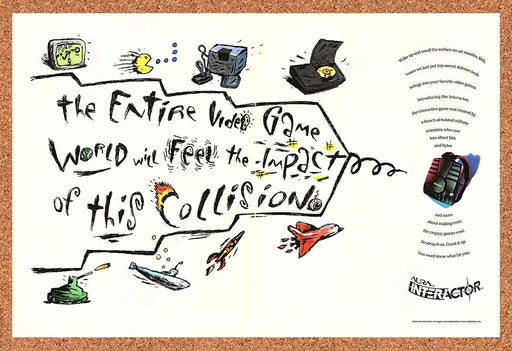 the ENTIRE Video Game
WORLD will FEEL the Impact
of this Collision.
Wake up and smell the surface-to-air missiles, kids.
'cause we just put top-secret defense tech-
nology into your favorite video games.
Introducing the Interactor,
the interactive game vest created by
a bunch of twisted military
scientists who care
less about bits
and bytes
and more
about making even
the crappy games cool.
So strap it on. Crank it up.
You won't know what hit you.
AURA
INTERACTOR